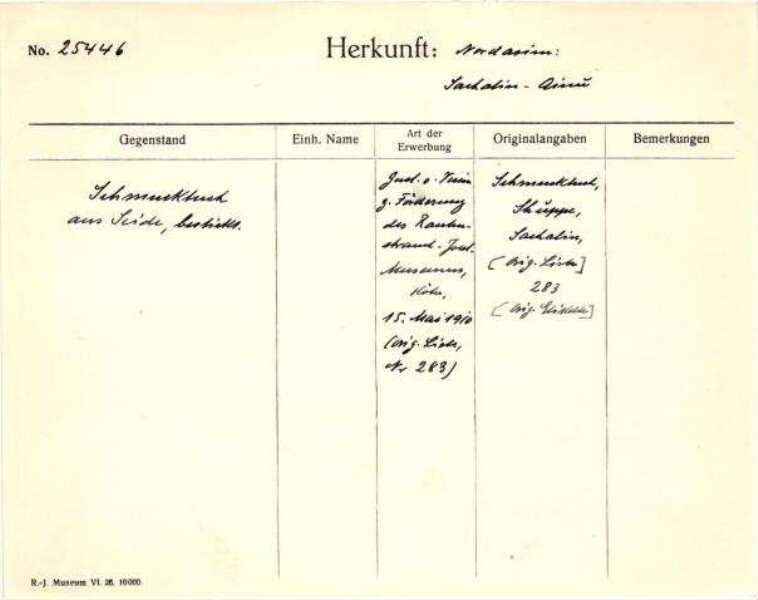 No. 25446
Herkunft: Nordasien:
Sachalin-Ainu
Gegenstand
Einh. Name
Art der Erwerbung
Originalangaben
Bemerkungen
Schmucktuch
aus Seide, bestickt.
Gesch. v. Verein
z. Förderung
des Rauten-
strauch-Joest-
Museums,
Köln,
15. Mai 1910
(Orig. Liste,
Nr 283)
Schmucktuch,
Sachalin,
[Orig. Liste]
283
[Orig. Etikette]
R.-J. Museum VI. 26. 10000.